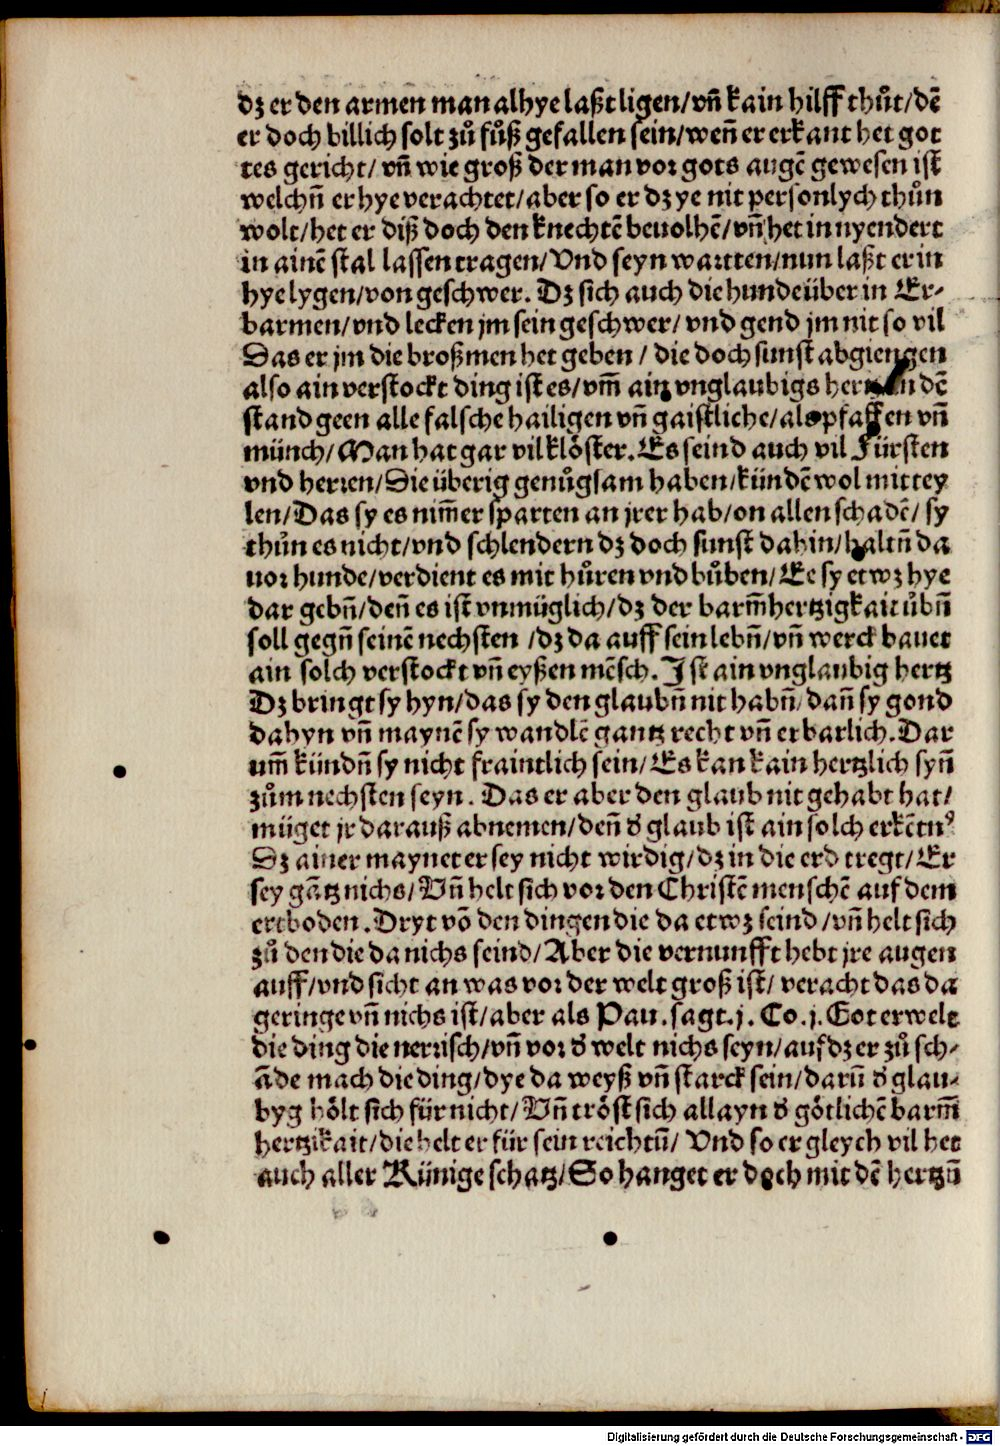 dz er den armen man alhye laßt ligen/ vñ kain hilff thůt/ dẽ
er doch billich solt zů fůß gefallen sein/ weñ er erkant het got
tes gericht/ vñ wie groß der man vor gots augẽ gewesen ist
welchñ er hye verachtet/ aber so er dz ye nit personlych thůn
wolt/ het er diß doch den knechtẽ beuolhẽ/ vñ het in nyendert
in ainẽ stal lassen tragen/ Vnd seyn wartten/ nun laßt er in
hye lygen/ von geschwer. Dz sich auch die hunde über in Er-
barmen/ vnd lecken jm sein geschwer/ vnd gend jm nit so vil
Das er jm die broßmen het geben / die doch sunst abgiengen
also ain verstockt ding ist es/ vm̃ ain vnglaubigs hertz In dẽ
stand geen alle falsche hailigen vñ gaistliche/ als pfaffen vñ
münch/ Man hat gar vil klöster. Es seind auch vil Fürsten
vnd herren/ Die überig genůgsam haben/ kündẽ wol mit tey
len/ Das sy es nim̃er sparten an jrer hab/ on allen schadẽ/ sy
thůn es nicht/ vnd schlendern dz doch sunst dahin/ haltñ da
uor hunde/ verdient es mit hůren vnd bůben/ Ee sy etwz hye
dar gebñ/ deñ es ist vnmüglich/ dz der barm̃hertzigkait übñ
soll gegñ seinẽ nechsten / dz da auff sein lebñ/ vñ werck bauet
ain solch verstockt vñ eyßen mẽsch. Ist ain vnglaubig hertz
Dz bringt sy hyn/ das sy den glaubñ nit habñ/ dañ sy gond
dahyn vñ maynẽ sy wandlẽ gantz recht vñ erbarlich. Dar
um̃ kündñ sy nicht fraintlich sein/ Es kan kain hertzlich syñ
zům nechsten seyn. Das er aber den glaub nit gehabt hat/
müget jr darauß abnemen/ deñ d̕ glaub ist ain solch erkẽtnꝰ
Dz ainer maynet er sey nicht wirdig/ dz in die erd tregt/ Er
sey gãtz nichs/ Vñ helt sich vor den Christẽ menschẽ auf dem
ertboden. Dryt võ den dingen die da etwz seind / vñ helt sich
zů den die da nichs seind/ Aber die vernunfft hebt jre augen
auff/ vnd sicht an was vor der welt groß ist/ veracht das da
geringe vñ nichs ist/ aber als Pau. sagt. j. Co. j. Got erwelt
die ding die nerrisch/ vñ vor d̕ welt nichs seyn/ auf dz er zů sch-
ãde mach die ding/ dye da weyß vñ starck sein/ darũ d̕ glau-
byg hölt sich für nicht/ Vñ tröst sich allayn d̕ götlichẽ barm̃
hertzikait/ die helt er für sein reichtũ/ Vnd so er gleych vil het
auch aller Künige schatz/ So hanget er doch mit dẽ hertzñ
Digitalisierung gefördert durch die Deutsche Forschungsgemeinschaft - DFG